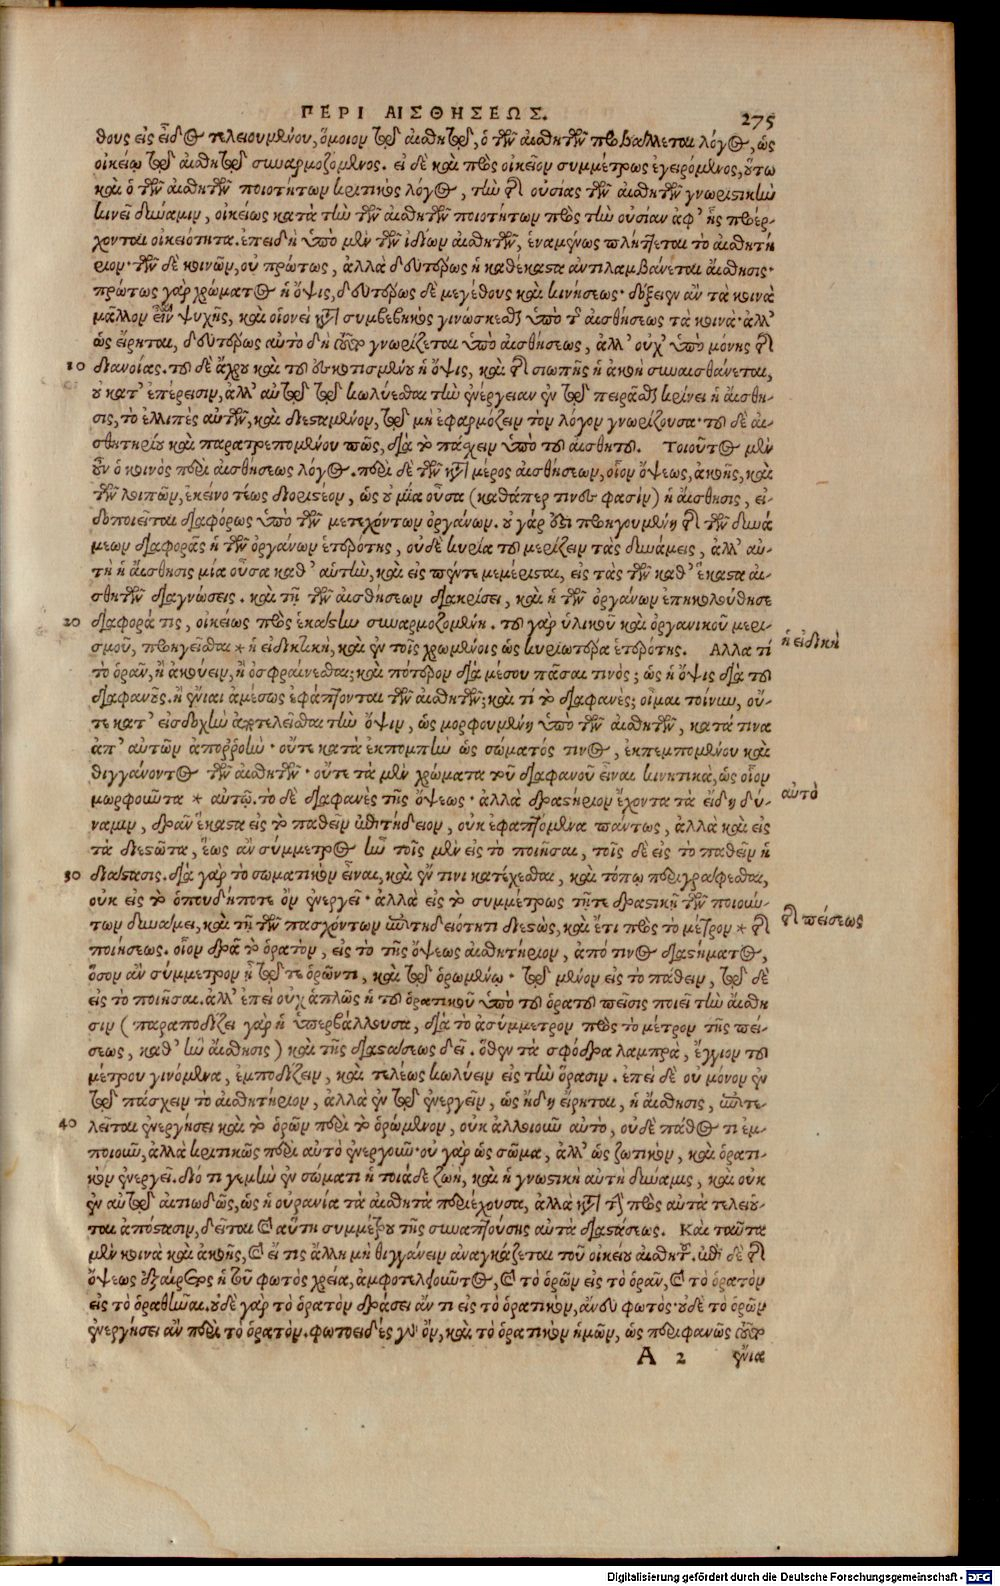 ΠΕΡΙ ΑΙΣΘΗΣΕΩΣ.
275
θους εἰς εἶδος τελειουμένου, ὅμοιον τῷ αἰσθητῷ, ὁ τῶν αἰσθητῶν προβάλλεται λόγος, ὡς
οἰκείῳ τῷ αἰσθητῷ συναρμοζόμενος. εἰ δὲ καὶ πρὸς οἰκεῖον συμμέτρως ἐγειρόμενος, οὕτω
καὶ ὁ τῶν αἰσθητῶν ποιοτήτων κριτικὸς λόγος, τὴν τῆς οὐσίας τῶν αἰσθητῶν γνωριστικὴν
κινεῖ δύναμιν, οἰκείως κατὰ τὴν τῶν αἰσθητῶν ποιοτήτων πρὸς τὴν οὐσίαν ἀφ' ἧς προέρ-
χονται οἰκειότητα. ἐπειδὴ ὑπὸ μὲν τῶν ἰδίων αἰσθητῶν, ἐναργῶς πλήττεται τὸ αἰσθητή
ριον· τῶν δὲ κοινῶν, οὐ πρώτως, ἀλλὰ δευτέρως ἡ καθέκαστα ἀντιλαμβάνεται αἴσθησις·
πρώτως γὰρ χρώματος ἡ ὄψις, δευτέρως δὲ μεγέθους καὶ κινήσεως· δόξειεν ἂν τὰ κοινὰ
μᾶλλον εἶναι ψυχῆς, καὶ οἱονεὶ κατὰ συμβεβηκὸς γινώσκεσθαι ὑπὸ τῆς αἰσθήσεως τὰ κοινά· ἀλλ'
ὡς εἴρηται, δευτέρως αὐτὸ δὴ τοῦτο γνωρίζεται ὑπὸ αἰσθήσεως, ἀλλ' οὐχ' ὑπὸ μόνης τῆς
10 διανοίας. τοῦ δὲ ἄχρου καὶ τοῦ ἐσκοτισμένου ἡ ὄψις, καὶ τῆς σιωπῆς ἡ ἀκοὴ συναισθάνεται,
οὐ κατ' ἐπέρεισιν, ἀλλ' αὐτῷ τῷ κωλύεσθαι τὴν ἐνέργειαν ἐν τῷ πειρᾶσθαι κρίνει ἡ αἴσθη-
σις, τὸ ἐλλιπὲς αὐτῶν, καὶ διεσταμένον, τῷ μὴ ἐφαρμόζειν τὸν λόγον γνωρίζουσα· τοῦ δὲ αἰ-
σθητηρίου καὶ παρατρεπομένου πῶς, διὰ τὸ πάσχειν ὑπὸ τοῦ αἰσθητοῦ. Τοιοῦτος μὲν
οὖν ὁ κοινὸς περὶ αἰσθήσεως λόγος. περὶ δὲ τῶν κατὰ μέρος αἰσθήσεων, οἷον ὄψεως, ἀκοῆς, καὶ
τῶν λοιπῶν, ἐκεῖνο τέως διοριστέον, ὡς οὐ μία οὖσα (καθάπερ τινές φασίν) ἡ αἴσθησις, εἰ-
δοποιεῖται διαφόρως ὑπὸ τῶν μετεχόντων ὀργάνων. οὐ γάρ ἐστι προηγουμένη τῆς τῶν δυνά
μεων διαφορᾶς ἡ τῶν ὀργάνων ἑτερότης, οὐδὲ κυρία τοῦ μερίζειν τὰς δυνάμεις, ἀλλ' αὐ-
τὴ ἡ αἴσθησις μία οὖσα καθ' αὑτὴν, καὶ εἰς πέντε μεμέρισται, εἰς τὰς τῶν καθ' ἕκαστα αἰ-
σθητῶν διαγνώσεις. καὶ τῇ τῶν αἰσθήσεων διακρίσει, καὶ ἡ τῶν ὀργάνων ἐπηκολούθησε
20 διαφορά τις, οἰκείως πρὸς ἑκάστην συναρμοζομένη. τοῦ γὰρ ὑλικοῦ καὶ ὀργανικοῦ μερι-
σμοῦ, προηγεῖσθαι * ἡ εἰδητικὴ, καὶ ἐν τοῖς χρωμένοις ὡς κυριωτέρα ἑτερότης. Αλλα τί
ἡ εἰδικὴ
τὸ ὁρᾶν, ἢ ἀκούειν, ἢ ὀσφραίνεσθαι; καὶ πότερον διὰ μέσου πᾶσαι τινός; ὡς ἡ ὄψις διὰ τοῦ
διαφανοῦς. ἢ ἔνιαι ἀμέσως ἐφάπτονται τῶν αἰσθητῶν; καὶ τί τὸ διαφανές; οἶμαι τοίνυν, οὔ-
τε κατ' εἰσδοχὴν ἀποτελεῖσθαι τὴν ὄψιν, ὡς μορφουμένη ὑπὸ τῶν αἰσθητῶν, κατά τινα
ἀπ' αὐτῶν ἀποῤῥοὴν· οὔτε κατὰ ἐκπομπὴν ὡς σώματός τινος, ἐκπεμπομένου καὶ
θιγγάνοντος τῶν αἰσθητῶν· οὔτε τὰ μὲν χρώματα τοῦ διαφανοῦ εἶναι κινητικὰ, ὡς οἷον
μωρφοῦντα * αὐτῷ. τὸ δὲ διαφανὲς τῆς ὄψεως· ἀλλὰ δραστήριον ἔχοντα τὰ εἴδη δύ-
αὐτὸ
ναμιν, δρᾶν ἕκαστα εἰς τὸ παθεῖν ἐπιτήδειον, οὐκ ἐφαπτόμενα πάντως, ἀλλὰ καὶ εἰς
τὰ διεστῶτα, ἕως ἂν σύμμετρος ἦν τοῖς μὲν εἰς τὸ ποιῆσαι, τοῖς δὲ εἰς τὸ παθεῖν ἡ
30 διάστασις. διὰ γὰρ τὸ σωματικὸν εἶναι, καὶ ἔν τινι κατέχεσθαι, καὶ τόπῳ περιγράφεσθαι,
οὐκ εἰς τὸ ὁπουδήποτε ὂν ἐνεργεῖ· ἀλλὰ εἰς τὸ συμμέτρως τῇ τε δραστικῇ τῶν ποιούν-
των δυνάμει, καὶ τῇ τῶν πασχόντων ἐπιτηδειότητι διεστὼς, καὶ ἔτι πρὸς τὸ μέτρον * τῆς
τῆς πείσεως
ποιήσεως. οἷον δρᾷ τὸ ὁρατὸν, εἰς τὸ τῆς ὄψεως αἰσθητήριον, ἀπό τινος διαστήματος,
ὅσον ἂν σύμμετρον ᾖ τῷ τε ὁρῶντι, καὶ τῷ ὁρωμένῳ· τῷ μένον εἰς τὸ πάθειν, τῷ δὲ
εἰς τὸ ποιῆσαι. ἀλλ' ἐπεὶ οὐχ ἁπλῶς ἡ τοῦ ὁρατικοῦ ὑπὸ τοῦ ὁρατοῦ πεῖσις ποιεῖ τὴν αἴσθη
σιν (παραποδίζει γὰρ ἡ ὑπερβάλλουσα, διὰ τὸ ἀσύμμετρον πρὸς τὸ μέτρον τῆς πεί-
σεως, καθ' ἣν αἴσθησις) καὶ τῆς διαστάσεως δεῖ. ὅθεν τὰ σφόδρα λαμπρὰ, ἔγγιον τοῦ
μέτρου γινόμενα, ἐμποδίζειν, καὶ τελέως κωλύειν εἰς τὴν ὅρασιν. ἐπεὶ δὲ οὐ μόνον ἐν
τῷ πάσχειν τὸ αἰσθητήριον, ἀλλὰ ἐν τῷ ἐνεργεῖν, ὡς ἤδη εἴρηται, ἡ αἴσθησις, ἐπιτε-
40 λεῖται ἐνεργήσει καὶ τὸ ὁρῶν περὶ τὸ ὁρώμενον, οὐκ ἀλλοιοῦν αὐτὸ, οὐδὲ πάθος τι ἐμ-
ποιοῦν, ἀλλὰ κριτικῶς περὶ αὐτὸ ἐνεργοῦν· οὐ γὰρ ὡς σῶμα, ἀλλ' ὡς ζωτικὸν, καὶ ὁρατι-
κὸν ἐνεργεῖ. διότι γε μὴν ἐν σώματι ἡ τοιάδε ζωὴ, καὶ ἡ γνωστικὴ αὐτὴ δύναμις, καὶ οὐκ
ἐν αὐτῷ αἰτιωδῶς, ὡς ἡ οὐρανία τὰ αἰσθητὰ περιέχουσα, ἀλλὰ κατὰ τὴν πρὸς αὐτὰ τελεῦ-
ται ἀπόστασιν, δεῖται καὶ αὕτη συμμέτρου τῆς συναπτούσης αὐτὰ διαστάσεως. Καὶ ταῦτα
μὲν κοινὰ καὶ ἀκοῆς, καὶ εἴ τις ἄλλη μὴ θιγγάνειν ἀναγκάζεται τοῦ οἰκείου αἰσθητοῦ. ἐπὶ δὲ τῆς
ὄψεως ἐξαίρετος ἡ τοῦ φωτὸς χρεία, ἀμφοτελειοῦντος, καὶ τὸ ὁρῶν εἰς τὸ ὁρᾶν, καὶ τὸ ὁρατὸν
εἰς τὸ ὁραθῆναι. οὐδὲ γὰρ τὸ ὁρατὸν δράσει ἄν τι εἰς τὸ ὁρατικὸν, ἄνευ φωτὸς· οὐδὲ τὸ ὁρῶν
ἐνεργήσει ἂν περὶ τὸ ὁρατόν. φωτοειδὲς γοῦν ὂν, καὶ τὸ ὁρατικὸν ἡμῶν, ὡς περιφανῶς τοῦτο
A 2 ἔνια
Digitalisierung gefördert durch die Deutsche Forschungsgemeinschaft - DFG